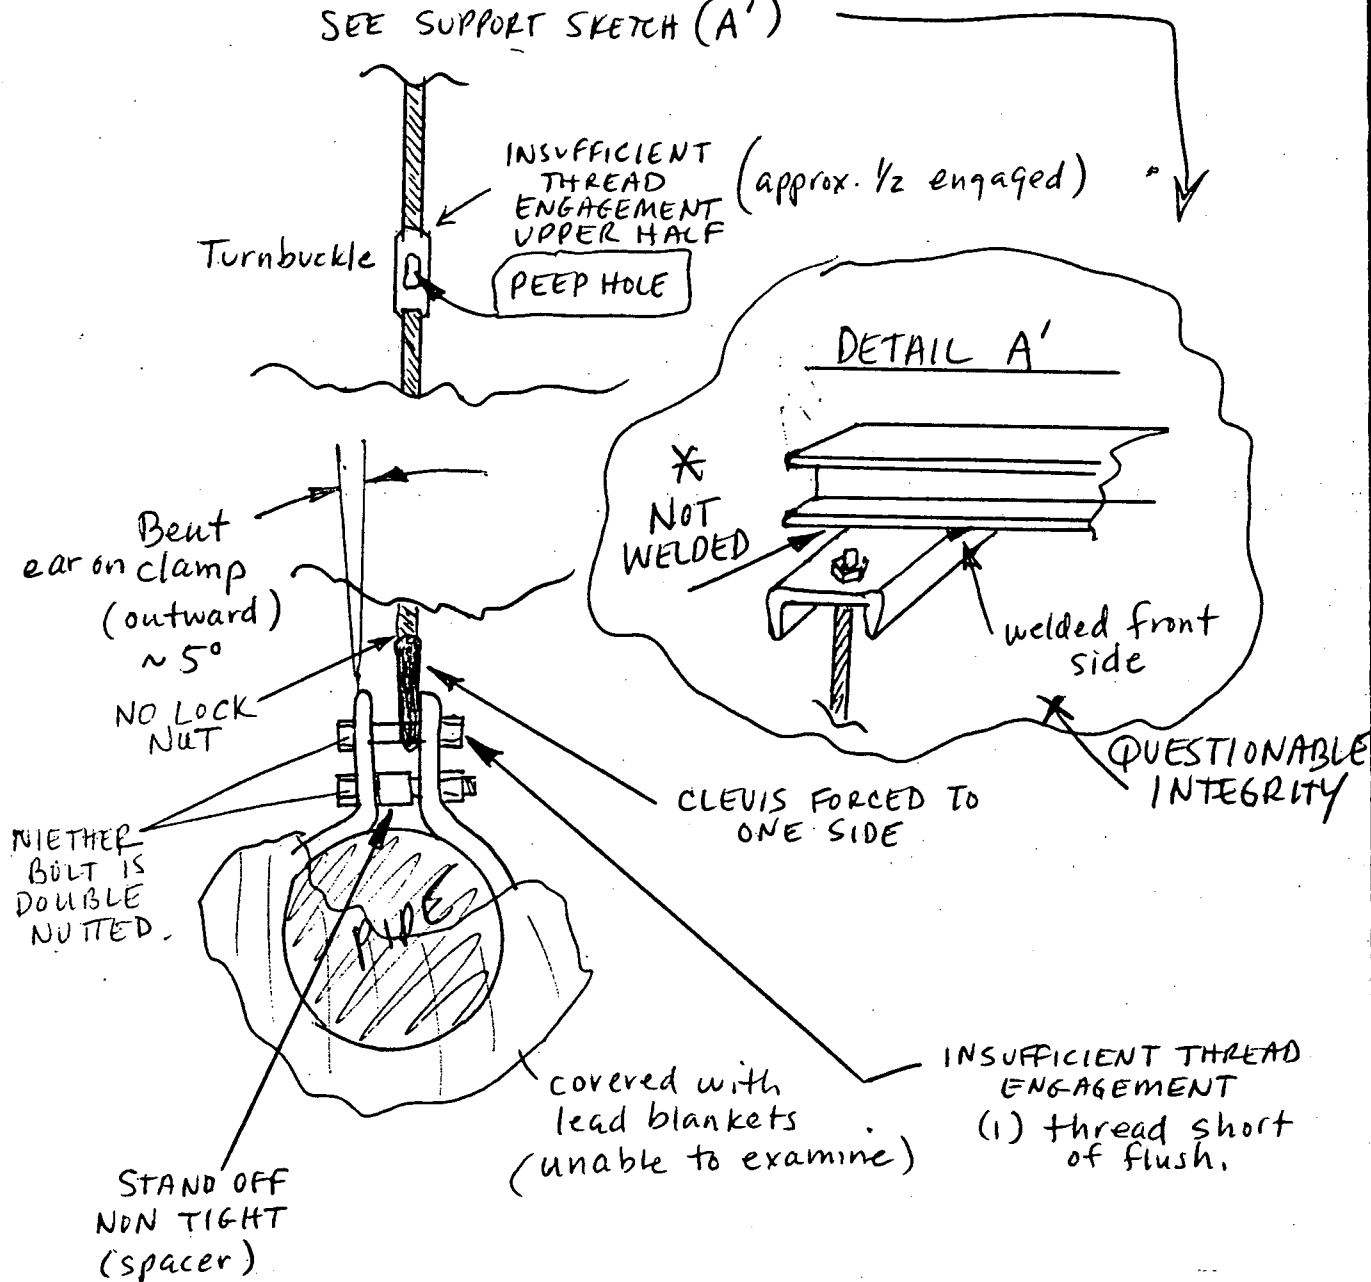 SEE SUPPORT SKETCH (A')
INSUFFICIENT
THREAD
ENGAGEMENT
UPPER HALF
(approx. 1/2 engaged)
Turnbuckle
PEEP HOLE
DETAIL A'
*
NOT
WELDED
welded front
side
QUESTIONABLE
INTEGRITY
Bent
ear on clamp
(outward)
~ 5°
NO LOCK
NUT
CLEVIS FORCED TO
ONE SIDE
NIETHER
BOLT IS
DOUBLE
NUTTED.
PIPE
covered with
lead blankets
(unable to examine)
INSUFFICIENT THREAD
ENGAGEMENT
(1) thread short
of flush.
STAND OFF
NON TIGHT
(spacer)